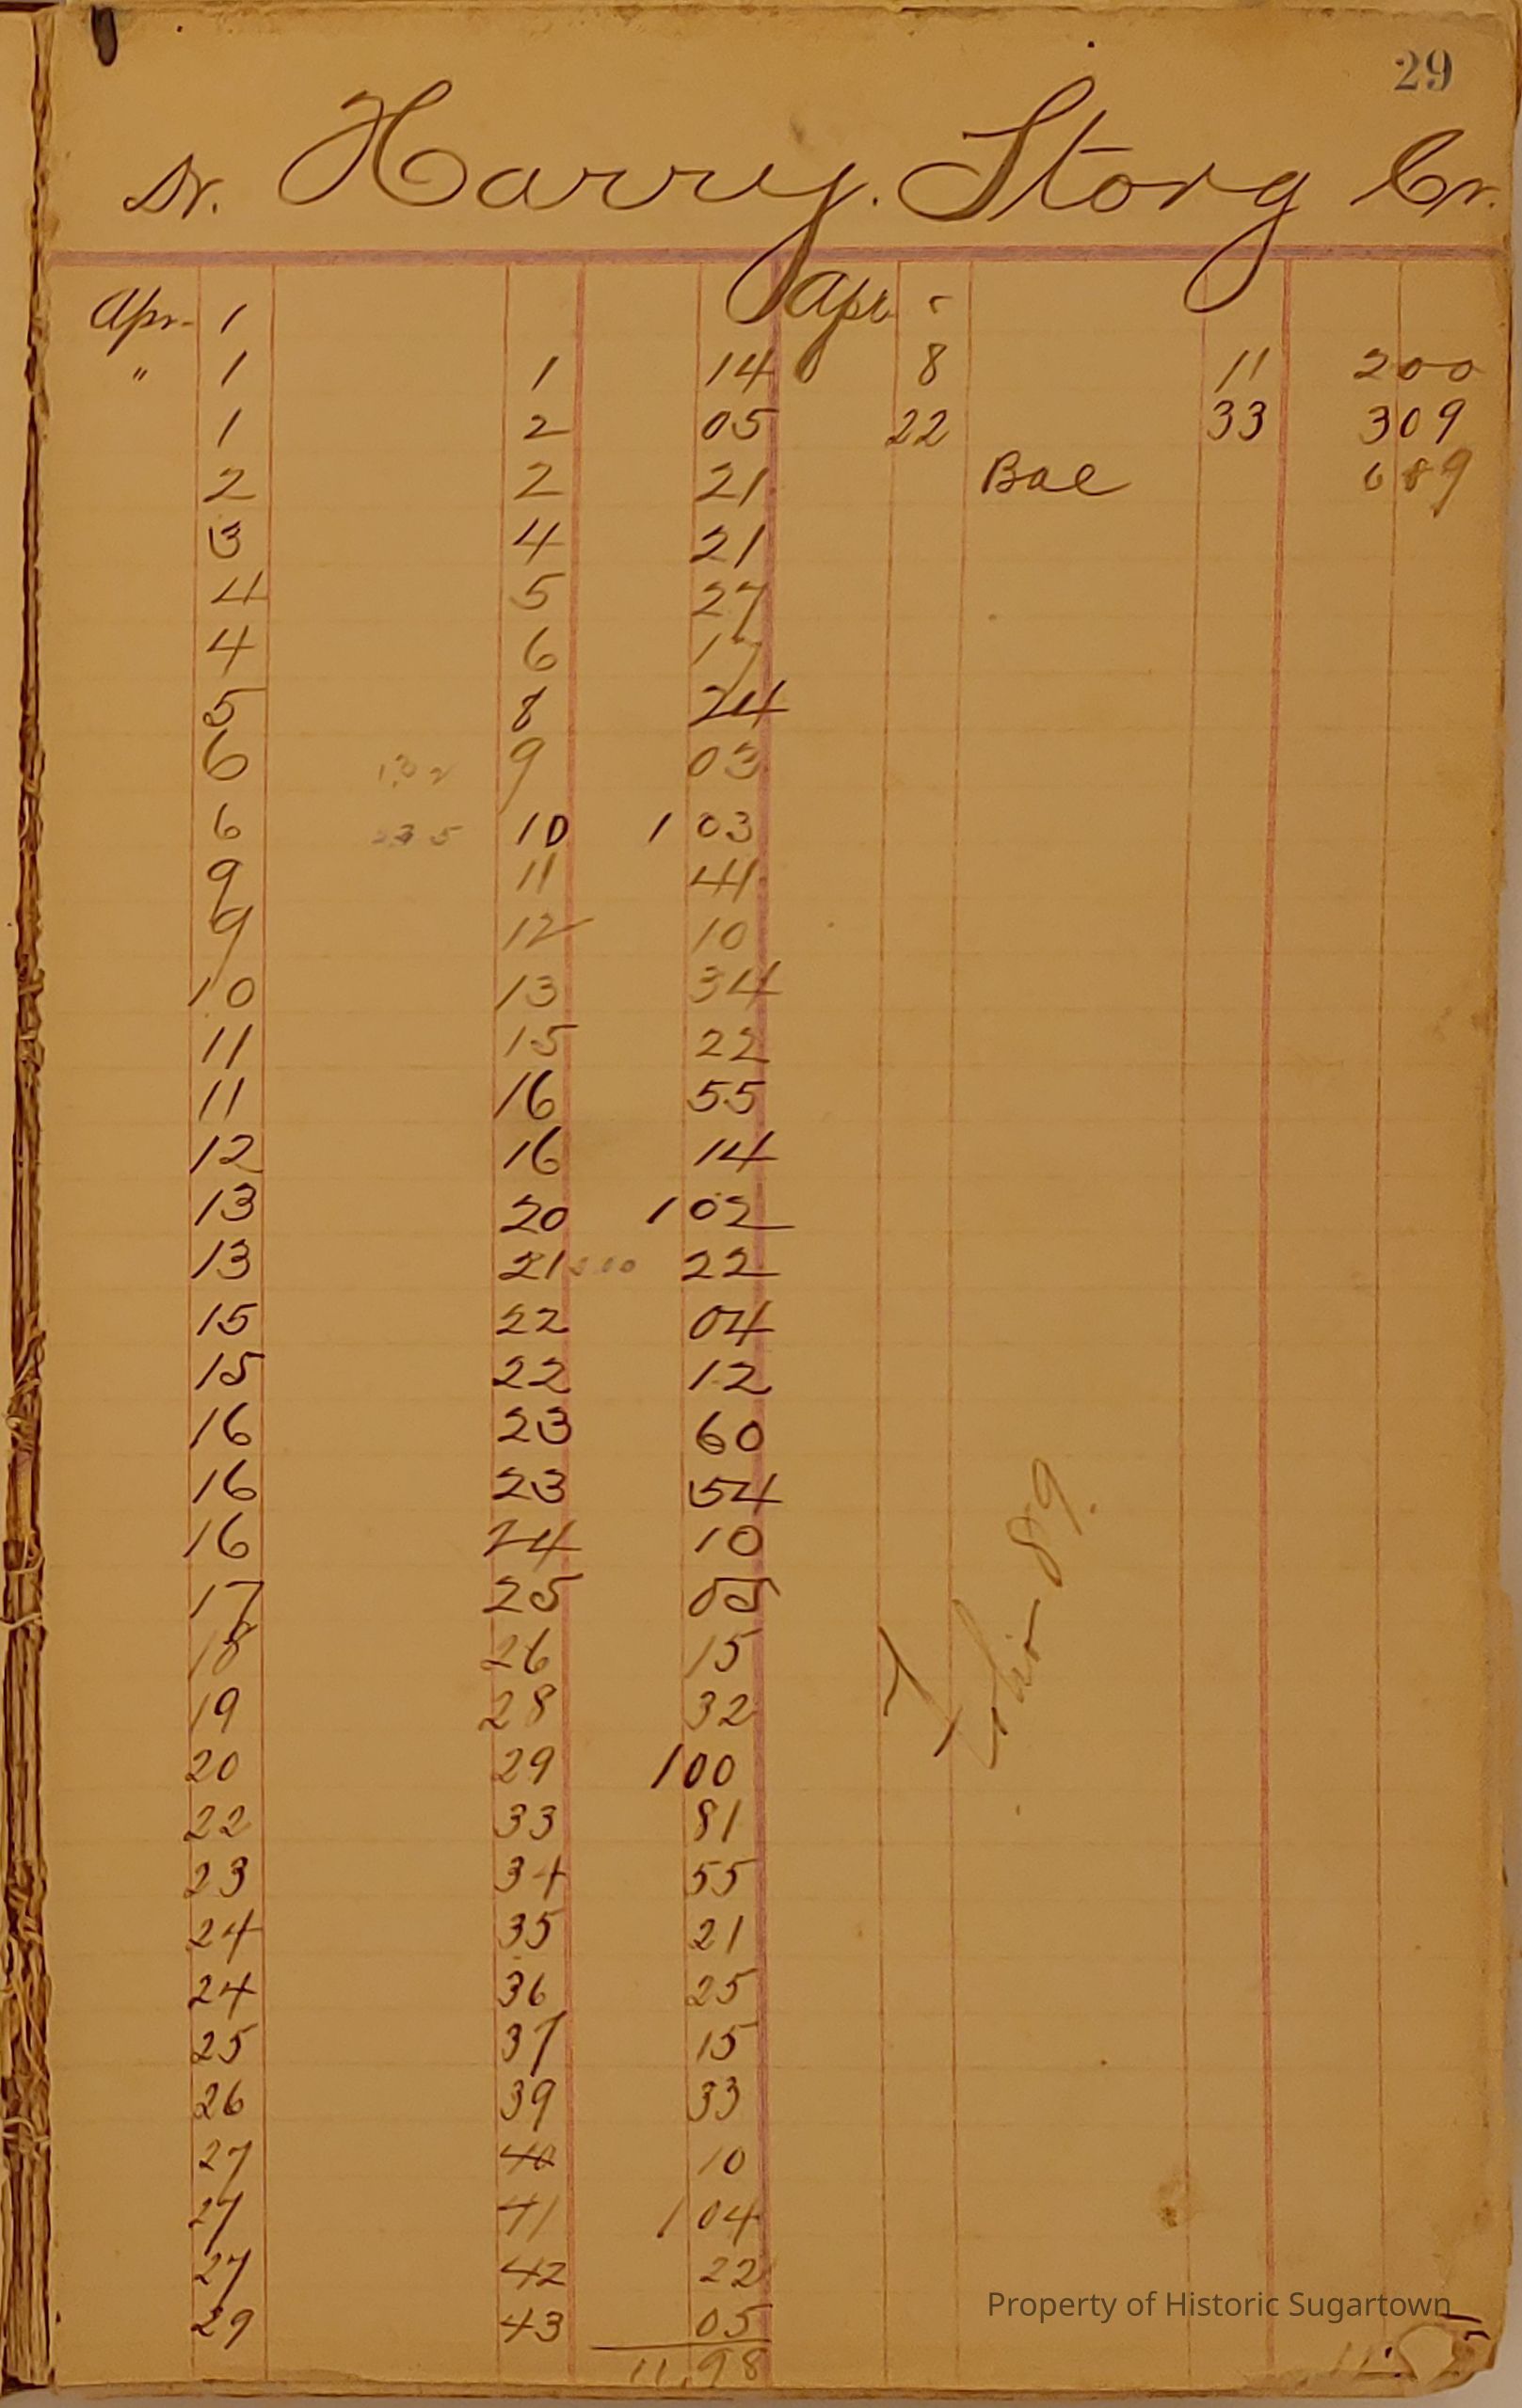 29
Dr. Harry. Storg Cr.
Apr. 1 Apr
" 1 1 14 8 11 200
1 2 05 22 33 309
2 2 21 Bal 689
3 4 21
4 5 27
4 6 17
5 8 24
6 9 03
6 10 1 03
9 11 41
9 12 10
10 13 34
11 15 22
11 16 55
12 16 14
13 20 1 02
13 21 22
15 22 04
15 22 12
16 23 60
16 23 54
16 24 10
17 25 05
18 26 15
19 28 32
20 29 1 00
22 33 81
23 34 55
24 35 21
24 36 25
25 37 15
26 39 33
27 40 10
27 41 1 04
27 42 22
29 43 05
11.98
89.
Property of Historic Sugartown